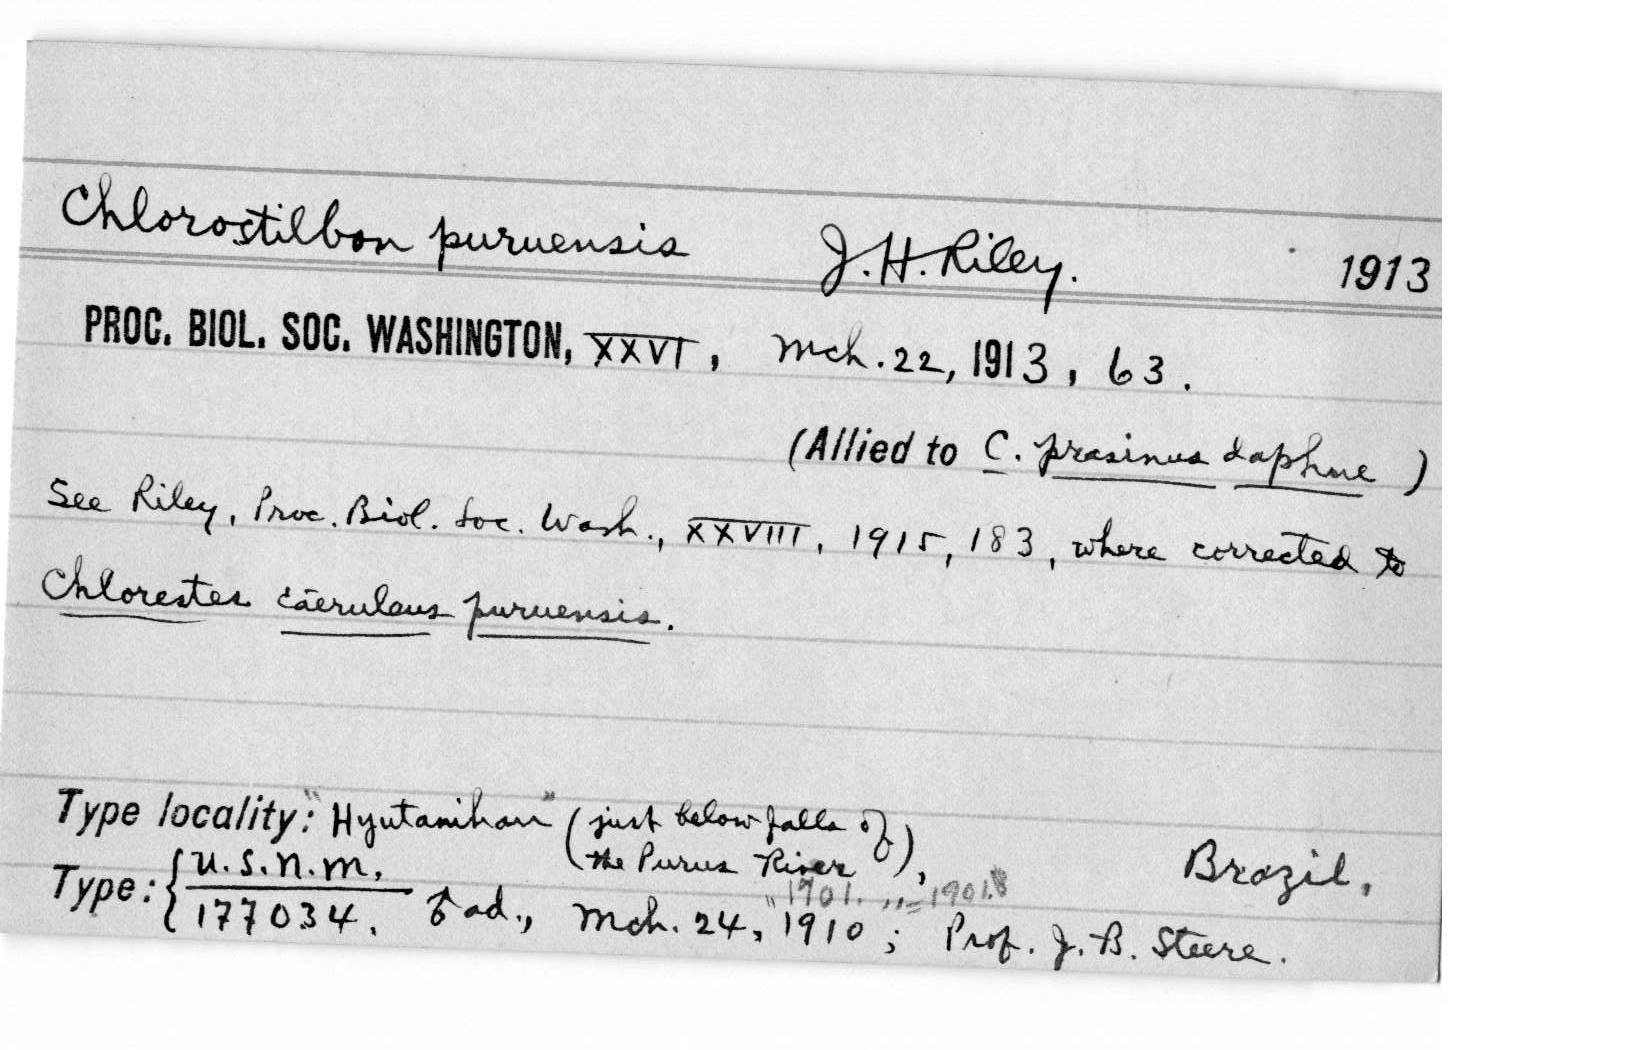 Chlorostilbon puruensis J. H. Riley. 1913
PROC. BIOL. SOC. WASHINGTON, XXVI, Mch. 22, 1913, 63.
(Allied to C. prasinus daphne)
See Riley, Proc. Biol. Soc. Wash., XXVIII, 1915, 183, where corrected to
Chlorestes caeruleus puruensis.
Type locality: "Hyutanihan" (just below falls of
the Purus River), Brazil,
"1901. „ = 1901.8
Type: { U.S.N.M. 177034. ♂ ad., Mch. 24, 1910; Prof. J. B. Steere.